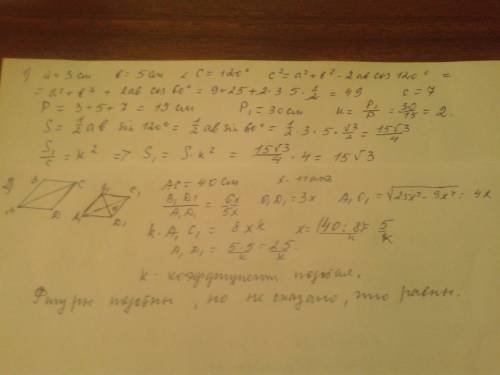 1) a = 3 cm b = 5 cm ∠ C = 120° c² = a² + b² - 2ab cos 120° =
= a² + b² + 2ab cos 60° = 9 + 25 + 2·3·5·1/2 = 49 c = 7
P = 3 + 5 + 7 = 15 cm P₁ = 30 cm k = P₁/P = 30/15 = 2.
S = 1/2 ab sin 120° = 1/2 ab sin 60° = 1/2 · 3 · 5 · √3/2 = 15√3/4
S₁/S = k² => S₁ = S·k² = 15√3/4 · 4 = 15√3
2) B C A D B₁ C₁ A₁ D₁ AC = 40 cm
B₁D₁/A₁D₁ = 6x/5x O₁D₁ = 3x A₁C₁ = √25x² - 9x² = 4x
k·A₁C₁ = 8xk x = (40:8)/k = 5/k
A₁D₁ = 5·5/k = 25/k.
k - коэффициент подобия.
Фигуры подобны, но не сказано, что равны.